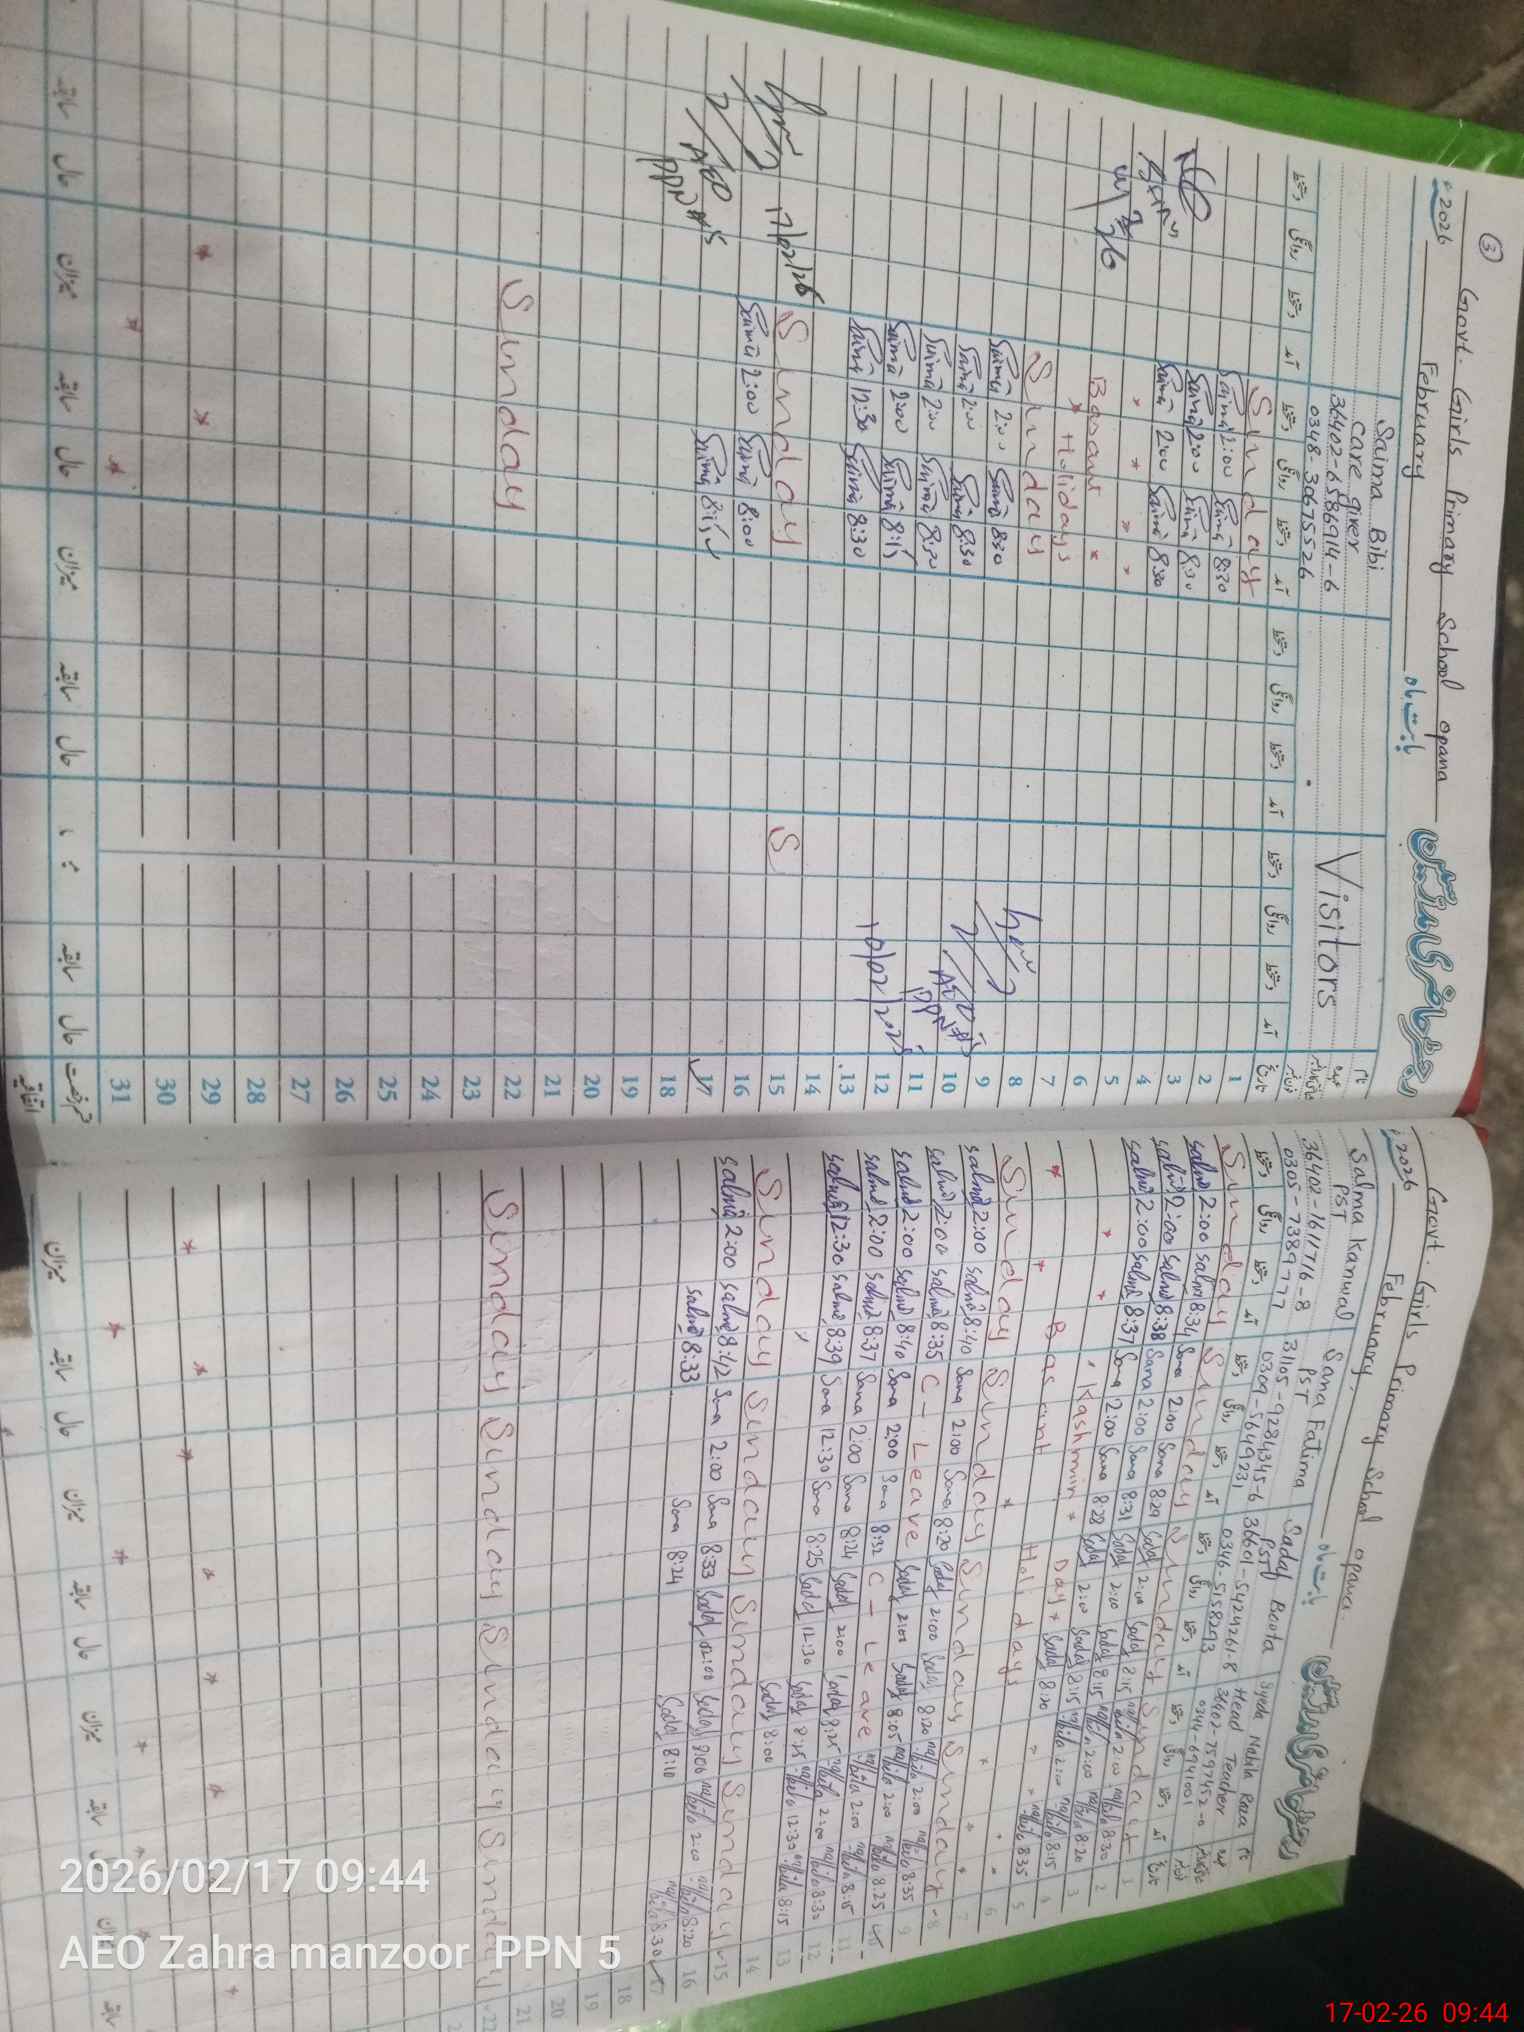 ③ Govt. Girls Primary School opana
2026 February بابت ماہ رجسٹر حاضری مدرسین
Saima Bibi
care giver
36402-6586914-6
0348-30675526
Visitors
نام
عہدہ
تاریخ
آمد دستخط روانگی دستخط
1 Sunday
2 8:30 Saima 2:00 Saima
3 8:30 Saima 2:00 Saima
4 8:30 Saima 2:00 Saima
5
6 Basant
7 Holidays
8 Sunday
9 8:30 Saima 2:00 Saima
10 8:30 Saima 2:00 Saima
11 8:30 Saima 2:00 Saima
12 8:15 Saima 2:00 Saima
13 8:30 Saima 12:30 Saima
14
15 Sunday S
16 8:00 Saima 2:00 Saima
17 8:15 Saima
18
19
20
21
22 Sunday
23
24
25
26
27
28
29
30
31
AEO
PPN #5
10/02/2025
17/02/26
AEO
PPN #5
اتفاقیہ
قسم رخصت حال سابقہ میزان حال سابقہ میزان حال سابقہ
Govt. Girls Primary School opana
2026 February, بابت ماہ رجسٹر حاضری مدرسین
Salma Kanwal
PST
36402-1611716-8
0305-7389777
Sana Fatima
PST
31105-9284345-6
0309-5649231
Sadaf Boota
PST
36601-5424261-8
0346-5158293
Syeda Nabila Raza
Head Teacher
36402-7597452-0
0344-6941001
نام
عہدہ
تاریخ
آمد دستخط روانگی دستخط
1 Sunday Sunday Sunday Sunday
2 8:30 Nabila 2:00 Nabila 8:15 Sadaf 2:00 Sadaf 8:29 Sana 2:00 Sana 8:34 Salma 2:00 Salma
3 8:20 Nabila 2:00 Nabila 8:15 Sadaf 2:00 Sadaf 8:31 Sana 2:00 Sana 8:38 Salma 2:00 Salma
4 8:15 Nabila 2:00 Nabila 8:15 Sadaf 2:00 Sadaf 8:28 Sana 2:00 Sana 8:37 Salma 2:00 Salma
5 8:35 Nabila 8:20 Sadaf Kashmir Day
6 Basant
7 Holidays
8 Sunday Sunday Sunday Sunday
9 8:35 Nabila 2:00 Nabila 8:20 Sadaf 2:00 Sadaf 8:20 Sana 2:00 Sana 8:40 Salma 2:00 Salma
10 8:25 Nabila 2:00 Nabila 8:05 Sadaf 2:00 Sadaf C-Leave 8:35 Salma 2:00 Salma
11 8:15 Nabila 2:00 Nabila C-Leave 8:32 Sana 2:00 Sana 8:40 Salma 2:00 Salma
12 8:30 Nabila 2:00 Nabila 8:25 Sadaf 2:00 Sadaf 8:24 Sana 2:00 Sana 8:37 Salma 2:00 Salma
13 8:15 Nabila 12:30 Nabila 8:25 Sadaf 12:30 Sadaf 8:25 Sana 12:30 Sana 8:39 Salma 12:30 Salma
14 8:00 Sadaf
15 Sunday Sunday Sunday Sunday
16 8:20 Nabila 2:00 Nabila 8:00 Sadaf 02:00 Sadaf 8:33 Sana 2:00 Sana 8:42 Salma 2:00 Salma
17 8:30 Nabila 8:10 Sadaf 8:24 Sana 8:33 Salma
18
19
20
21
22 Sunday Sunday Sunday Sunday
سابقہ میزان حال سابقہ میزان حال سابقہ میزان حال سابقہ میزان
2026/02/17 09:44
AEO Zahra manzoor PPN 5
17-02-26 09:44